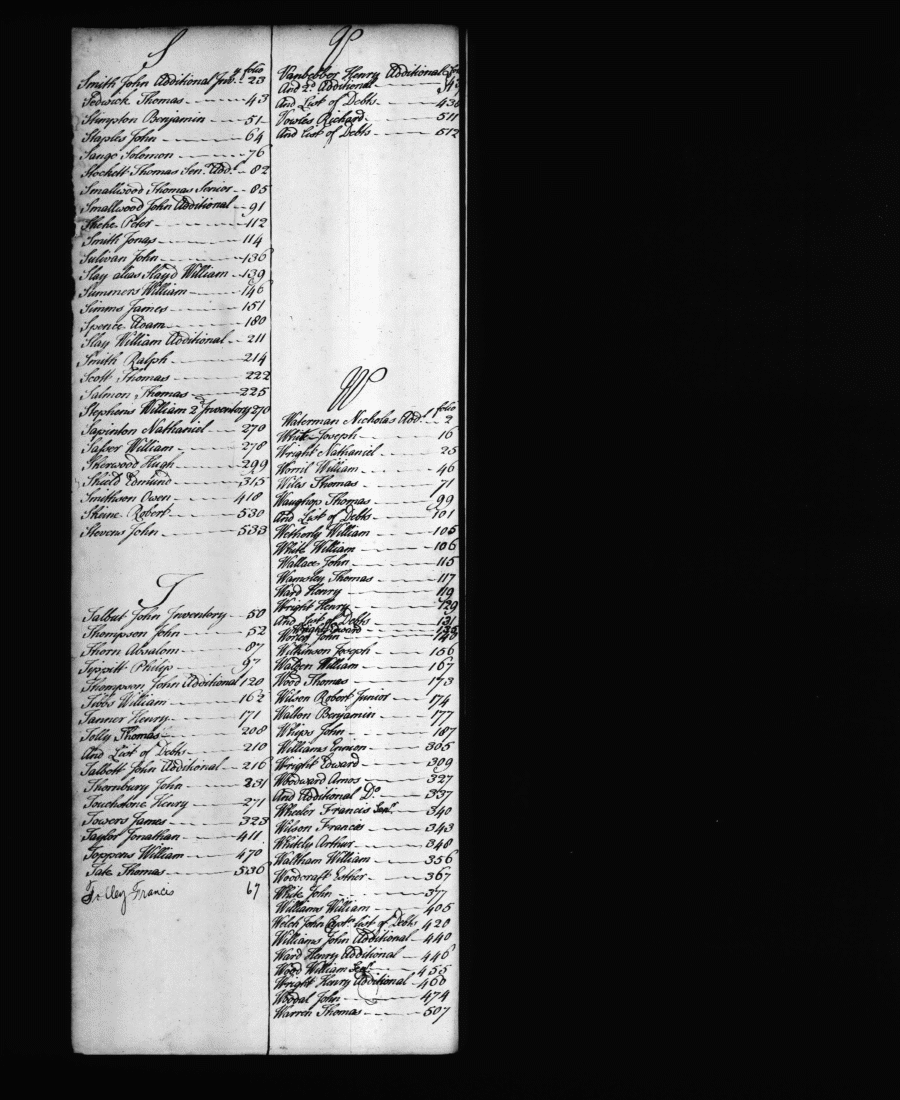 S
folio
Smith John Additional Inv.. 23
Sedwick Thomas 43
Stimpton Benjamin 51
Staples John 64
Sango Solomon 76
Stockett Thomas Senr. Addl. 82
Smallwood Thomas Senior 85
Smallwood John Additional 91
Skehe Peter 112
Smith Jonas 114
Sulivan John 136
Slay alias Slayd William 139
Summers William 146
Simms James 151
Spence Adam 180
Slay William Additional 211
Smith Ralph 214
Scott Thomas 222
Salmon Thomas 225
Stephens William 2 Inventory 270
Sapinton Nathaniel 270
Sasser William 278
Sherwood Hugh 299
Shield Edmund 315
Smithson Owen 418
Skeine Robert 530
Stevens John 533
T
Talbut John Inventory 50
Thompson John 52
Thorn Absalom 87
Tippitt Philip 97
Thompson John Additional 120
Tibbs William 162
Tanner Henry 171
Tolly Thomas 208
And List of Debts 210
Talbott John Additional 216
Thornbury John 231
Touchstone Henry 271
Towers James 323
Taylor Jonathan 411
Toppens William 470
Tate Thomas 536
Tolley Francis 67
V
Vanbebber Henry Additional
And 2d. Additional
And List of Debts 436
Vowles Richard 511
And List of Debts 512
W
folio
Waterman Nicholas Addl. 2
White Joseph 16
Wright Nathaniel 25
Worril William 46
Wiles Thomas 71
Waughop Thomas 99
And List of Debts 101
Wetherly William 105
White William 106
Wallace John 115
Wamsley Thomas 117
Ward Henry 119
Wright Henry 129
And List of Debts 131
Wright Edward
John 148
Wilkinson Joseph 156
William 167
Wood Thomas 173
Wilson Robert Junior 174
Walton Benjamin 177
Whips John 187
Williams Ennion 305
Wright Edward 309
Woodward Amos 327
And Additional Do. 337
Wheeler Francis Senr. 340
Wilson Francis 343
Whitely Arthur 348
Waltham William 356
Woodcraft Esther 367
White John 377
Williams William 405
Welch John Capt. List of Debts 420
Williams John Additional 440
Ward Henry Additional 446
Wood William Senr. 455
Wright Henry Additional 460
Woodal John 474
Warren Thomas 507